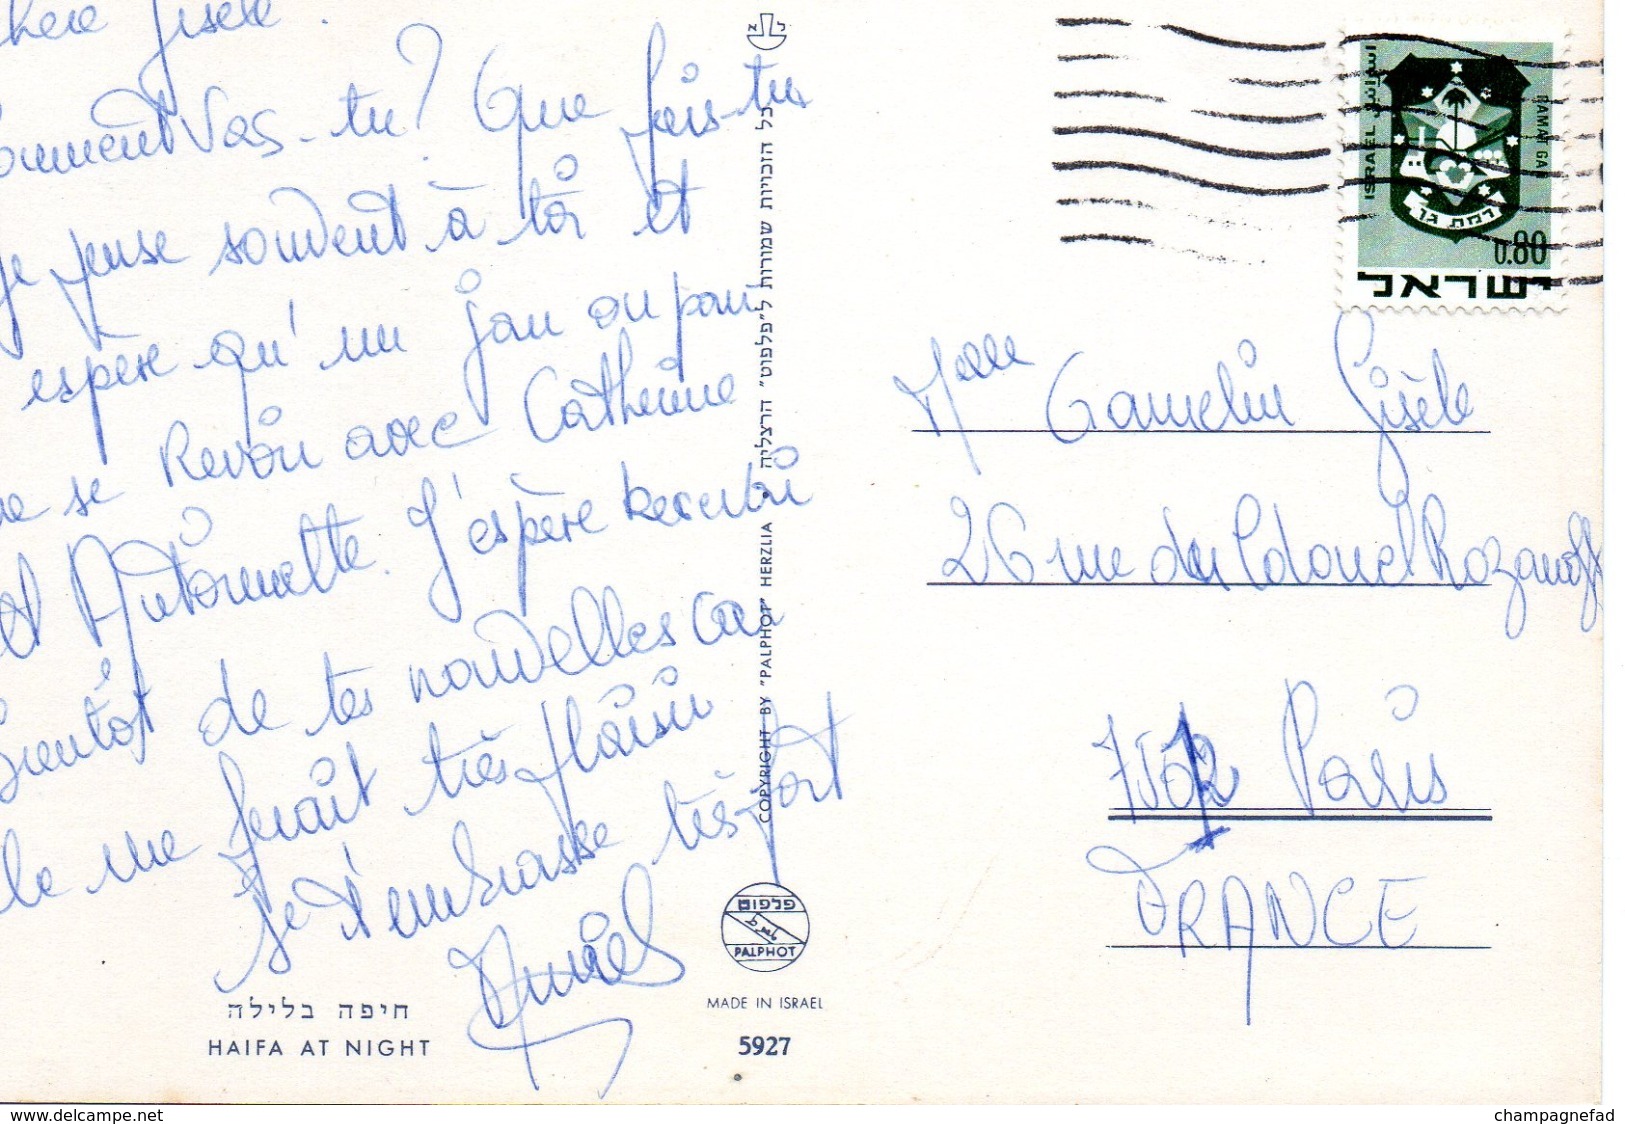 Chère Gisèle.
Comment vas-tu? Que fais-tu
Je pense souvent à toi et
espère qu'un jour on pourra
se Revoir avec Catherine
et Antoinette. J'espère Recevoir
bientôt de tes nouvelles car
cela me ferait très plaisir
Je t'embrasse très fort
חיפה בלילה
HAIFA AT NIGHT
כל הזכויות שמורות ל"פלפוט" הרצליה • COPYRIGHT BY "PALPHOT" HERZLIA
פלפוט
PALPHOT
MADE IN ISRAEL
5927
اسرائيل ISRAEL
RAMAT GAN
רמת גן
0.80
ישראל
Melle Gamelin Gisèle
26 rue du Colonel Rozanoff
Paris
FRANCE
www.delcampe.net
champagnefad